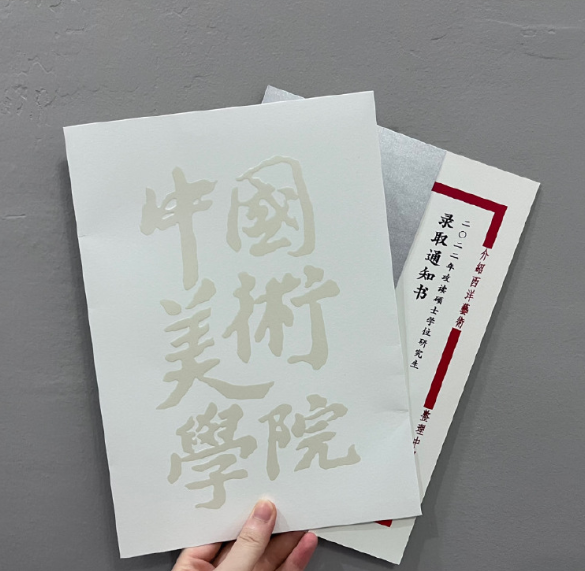 中國
美術
學院
二〇二二年攻读硕士学位研究生
录取通知书
介紹西洋藝術
整理中